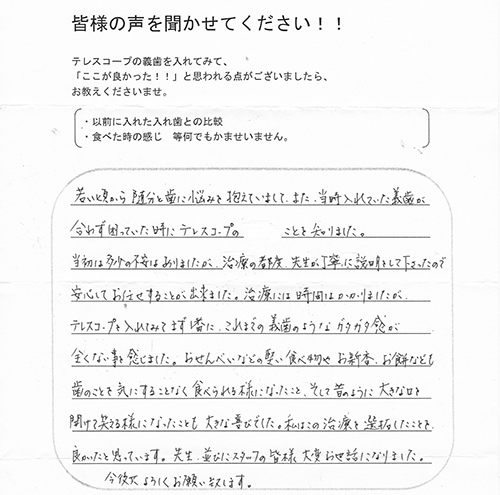 皆様の声を聞かせてください！！
テレスコープの義歯を入れてみて、
「ここが良かった！！」と思われる点がございましたら、
お教えくださいませ。
・以前に入れた入れ歯との比較
・食べた時の感じ　等何でもかませいません。
若い頃から随分と歯に悩みを抱えていまして、また、当時入れていた義歯が
合わず困っていた時にテレスコープの　　　ことを知りました。
当初は多少の不安はありましたが、治療の都度、先生が丁寧に説明をして下さったので
安心してお任せすることが出来ました。治療には時間はかかりましたが、
テレスコープを入れてみてまず1番に、これまでの義歯のようなガタガタ感が
全くない事を感じました。おせんべいなどの堅い食べ物や、お新香、お餅なども
歯のことを気にすることなく食べられる様になったこと、そして昔のように大きな口を
開けて笑える様になったことも大きな喜びでした。私はこの治療を選択したことを、
良かったと思っています。先生、並びにスタッフの皆様、大変お世話になりました。
今後共よろしくお願い致します。